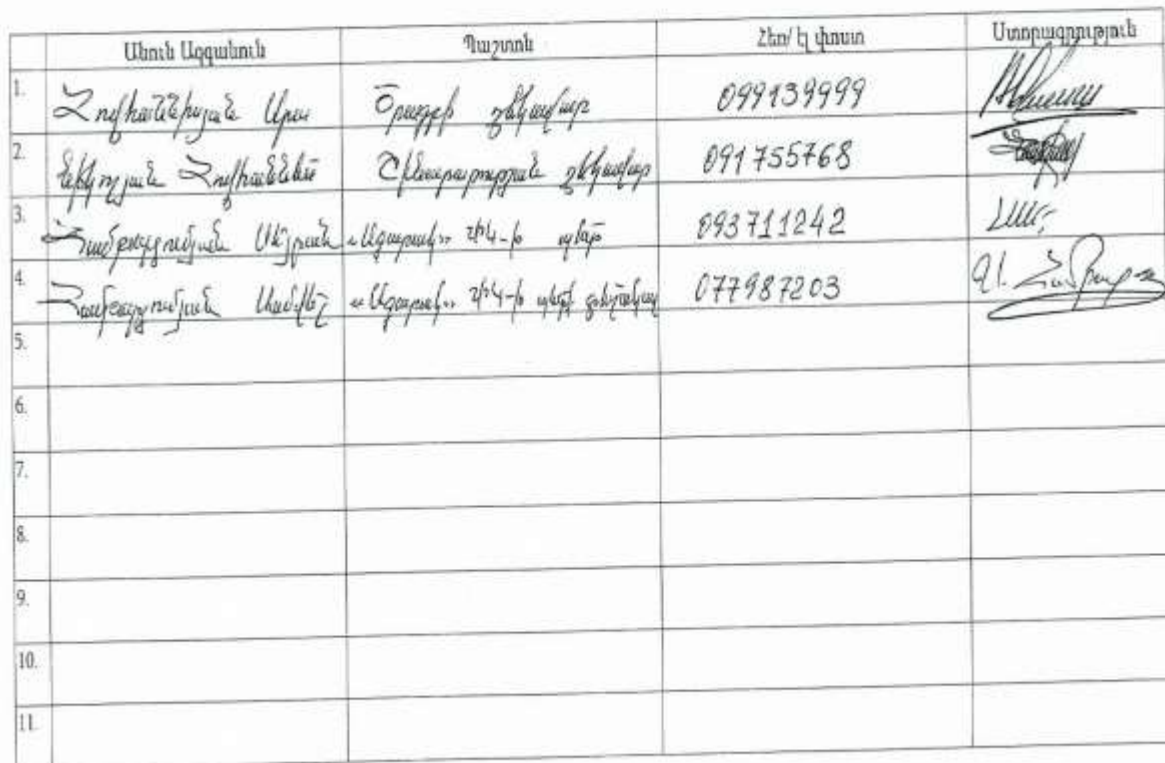 Անուն Ազգանուն Պաշտոն Հեռ/ էլ փոստ Ստորագրություն
1. Հովհաննիսյան Արա Ծրագրի ղեկավար 099139999
2. Նիկողյան Հովհաննես Շինարարության ղեկավար 091755768
3. Համբարձումյան «Ագարակ» ՀԷԿ-ի պետ 093711242
4. Համբարձումյան Սամվել «Ագարակ» ՀԷԿ-ի պետի 077987203
5.
6.
7.
8.
9.
10.
11.